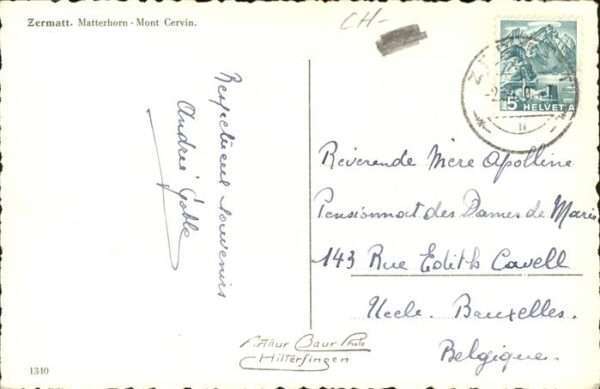 Zermatt. Matterhorn - Mont Cervin.
CH-
5 HELVETIA
Respectueux souvenirs
André
Révérende Mère Apolline
Pensionnat des Dames de Marie
143 Rue Edith Cavell
Uccle. Bruxelles.
Belgique.
Arthur Baur Photo
Hilterfingen
1310